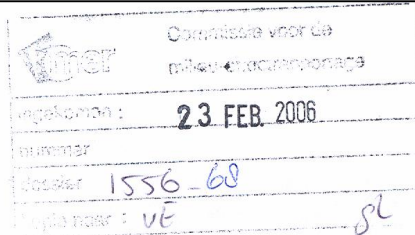 mer Commissie voor de
milieu-effectrapportage
ingekomen : 23 FEB. 2006
nummer
dossier 1556-68
kopie naar : VE gL